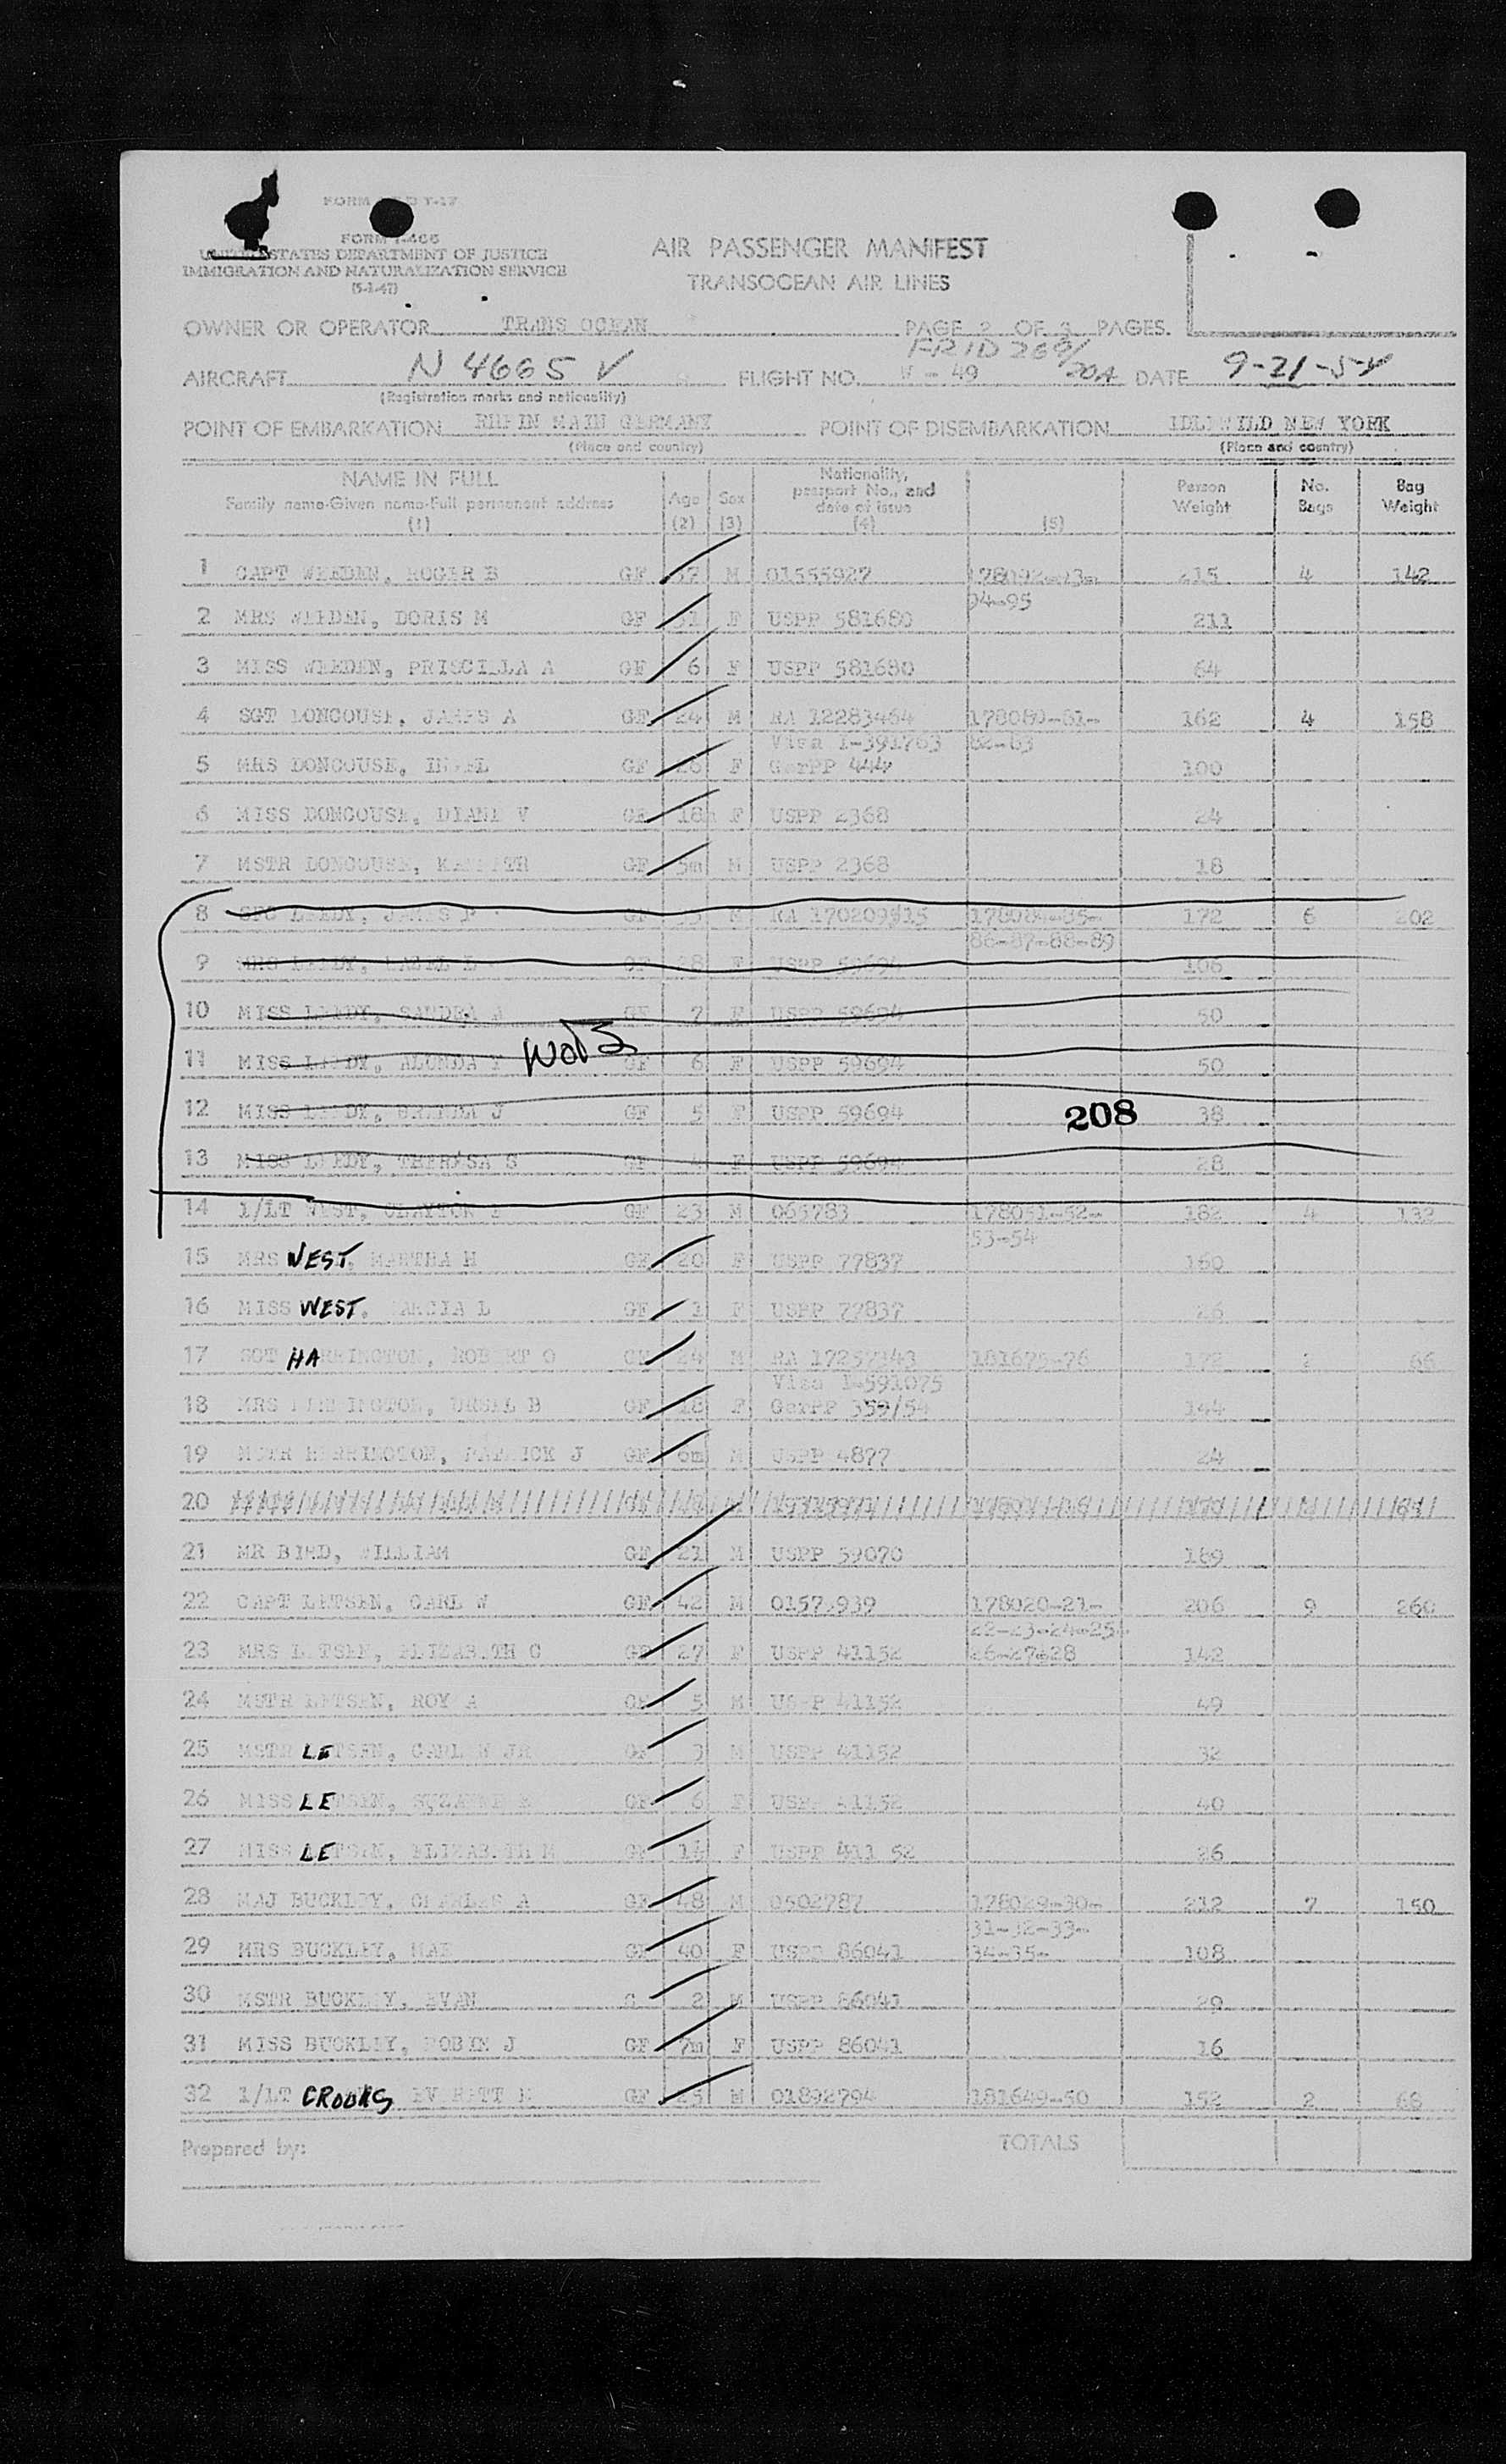 FORM I-466
STATES DEPARTMENT OF JUSTICE
IMMIGRATION AND NATURALIZATION SERVICE
(5-1-47)
AIR PASSENGER MANIFEST
TRANSOCEAN AIR LINES
OWNER OR OPERATOR TRANS OCEAN PAGE 2 OF 3 PAGES.
AIRCRAFT N 4665 V FLIGHT NO. V - 49 DATE 9-21-54
(Registration marks and nationality)
POINT OF EMBARKATION RHEIN MAIN GERMANY POINT OF DISEMBARKATION IDLEWILD NEW YORK
(Place and country) (Place and country)
NAME IN FULL
Family name-Given name-Full permanent address
(1)
Age
(2)
Sex
(3)
Nationality,
passport No., and
date of issue
(4)
(5)
Person
Weight
No.
Bags
Bag
Weight
1 CAPT WEEDEN, ROGER B GF 37 M 01555927 178092-93- 215 4 142
94-95
2 MRS WEEDEN, DORIS M GF 31 F USPP 581680 211
3 MISS WEEDEN, PRISCILLA A GF 6 F USPP 581680 64
4 SGT DONCOUSE, JAMES A GF 24 M RA 12283464 178080-81- 162 4 158
Visa I-391763 82-83
5 MRS DONCOUSE, GF 26 F GerPP 444 100
6 MISS DONCOUSE, DIANE V GF 18m F USPP 2368 24
7 MSTR DONCOUSE, KENNETH GF 5m M USPP 2368 18
8 SFC LEEDY, JAMES GF M RA 170209515 178084-85- 172 6 202
86-87-88-89
9 MRS LEEDY, HAZEL L GF 28 F USPP 59694 106
10 MISS LEEDY, SANDRA A GF 7 F USPP 59694 50
11 MISS LEEDY, GF 6 F USPP 59694 50
12 MISS LEEDY, J GF 5 F USPP 59694 38
208
13 MISS LEEDY, THERESA S GF 4 F USPP 59694 28
14 1/LT WEST, CLAYTON GF 23 M 065783 178051-52- 182 4 132
53-54
15 MRS WEST, MARTHA H GF 20 F USPP 77837 160
16 MISS WEST, MARCIA L GF 1 F USPP 77837 26
17 SGT HARRINGTON, ROBERT O GF 24 M RA 17257343 181675-76 172 2 66
Visa I-591075
18 MRS HARRINGTON, URSEL B GF 18 F GerPP 359/54 144
19 MSTR HARRINGTON, PATRICK J GF 6m M USPP 4877 24
20
21 MR BIRD, WILLIAM GF 21 M USPP 59070 189
22 CAPT LETSEN, CARL W GF 42 M 178020-21- 206 9 260
22-23-24-25-
23 MRS LETSEN, ELIZABETH C GF 27 F USPP 41152 26-27-28 142
24 MSTR LETSEN, ROY A GF 5 M USPP 41152 49
25 MSTR LETSEN, CARL W JR GF 3 M USPP 41152 32
26 MISS LETSEN, SUZANNE GF 6 F USPP 41152 40
27 MISS LETSEN, ELIZABETH M GF F USPP 411 52 26
28 MAJ BUCKLEY, CHARLES A GF 48 M 0502787 178029-30- 212 7 150
31-32-33-
29 MRS BUCKLEY, MAE GF 40 F USPP 86041 34-35- 108
30 MSTR BUCKLEY, EVAN G 2 M USPP 86041 29
31 MISS BUCKLEY, ROBIN J GF 7m F USPP 86041 16
32 1/LT CROOKS, EVERETT GF 25 M 01892794 181649-50 152 2 66
Prepared by: TOTALS